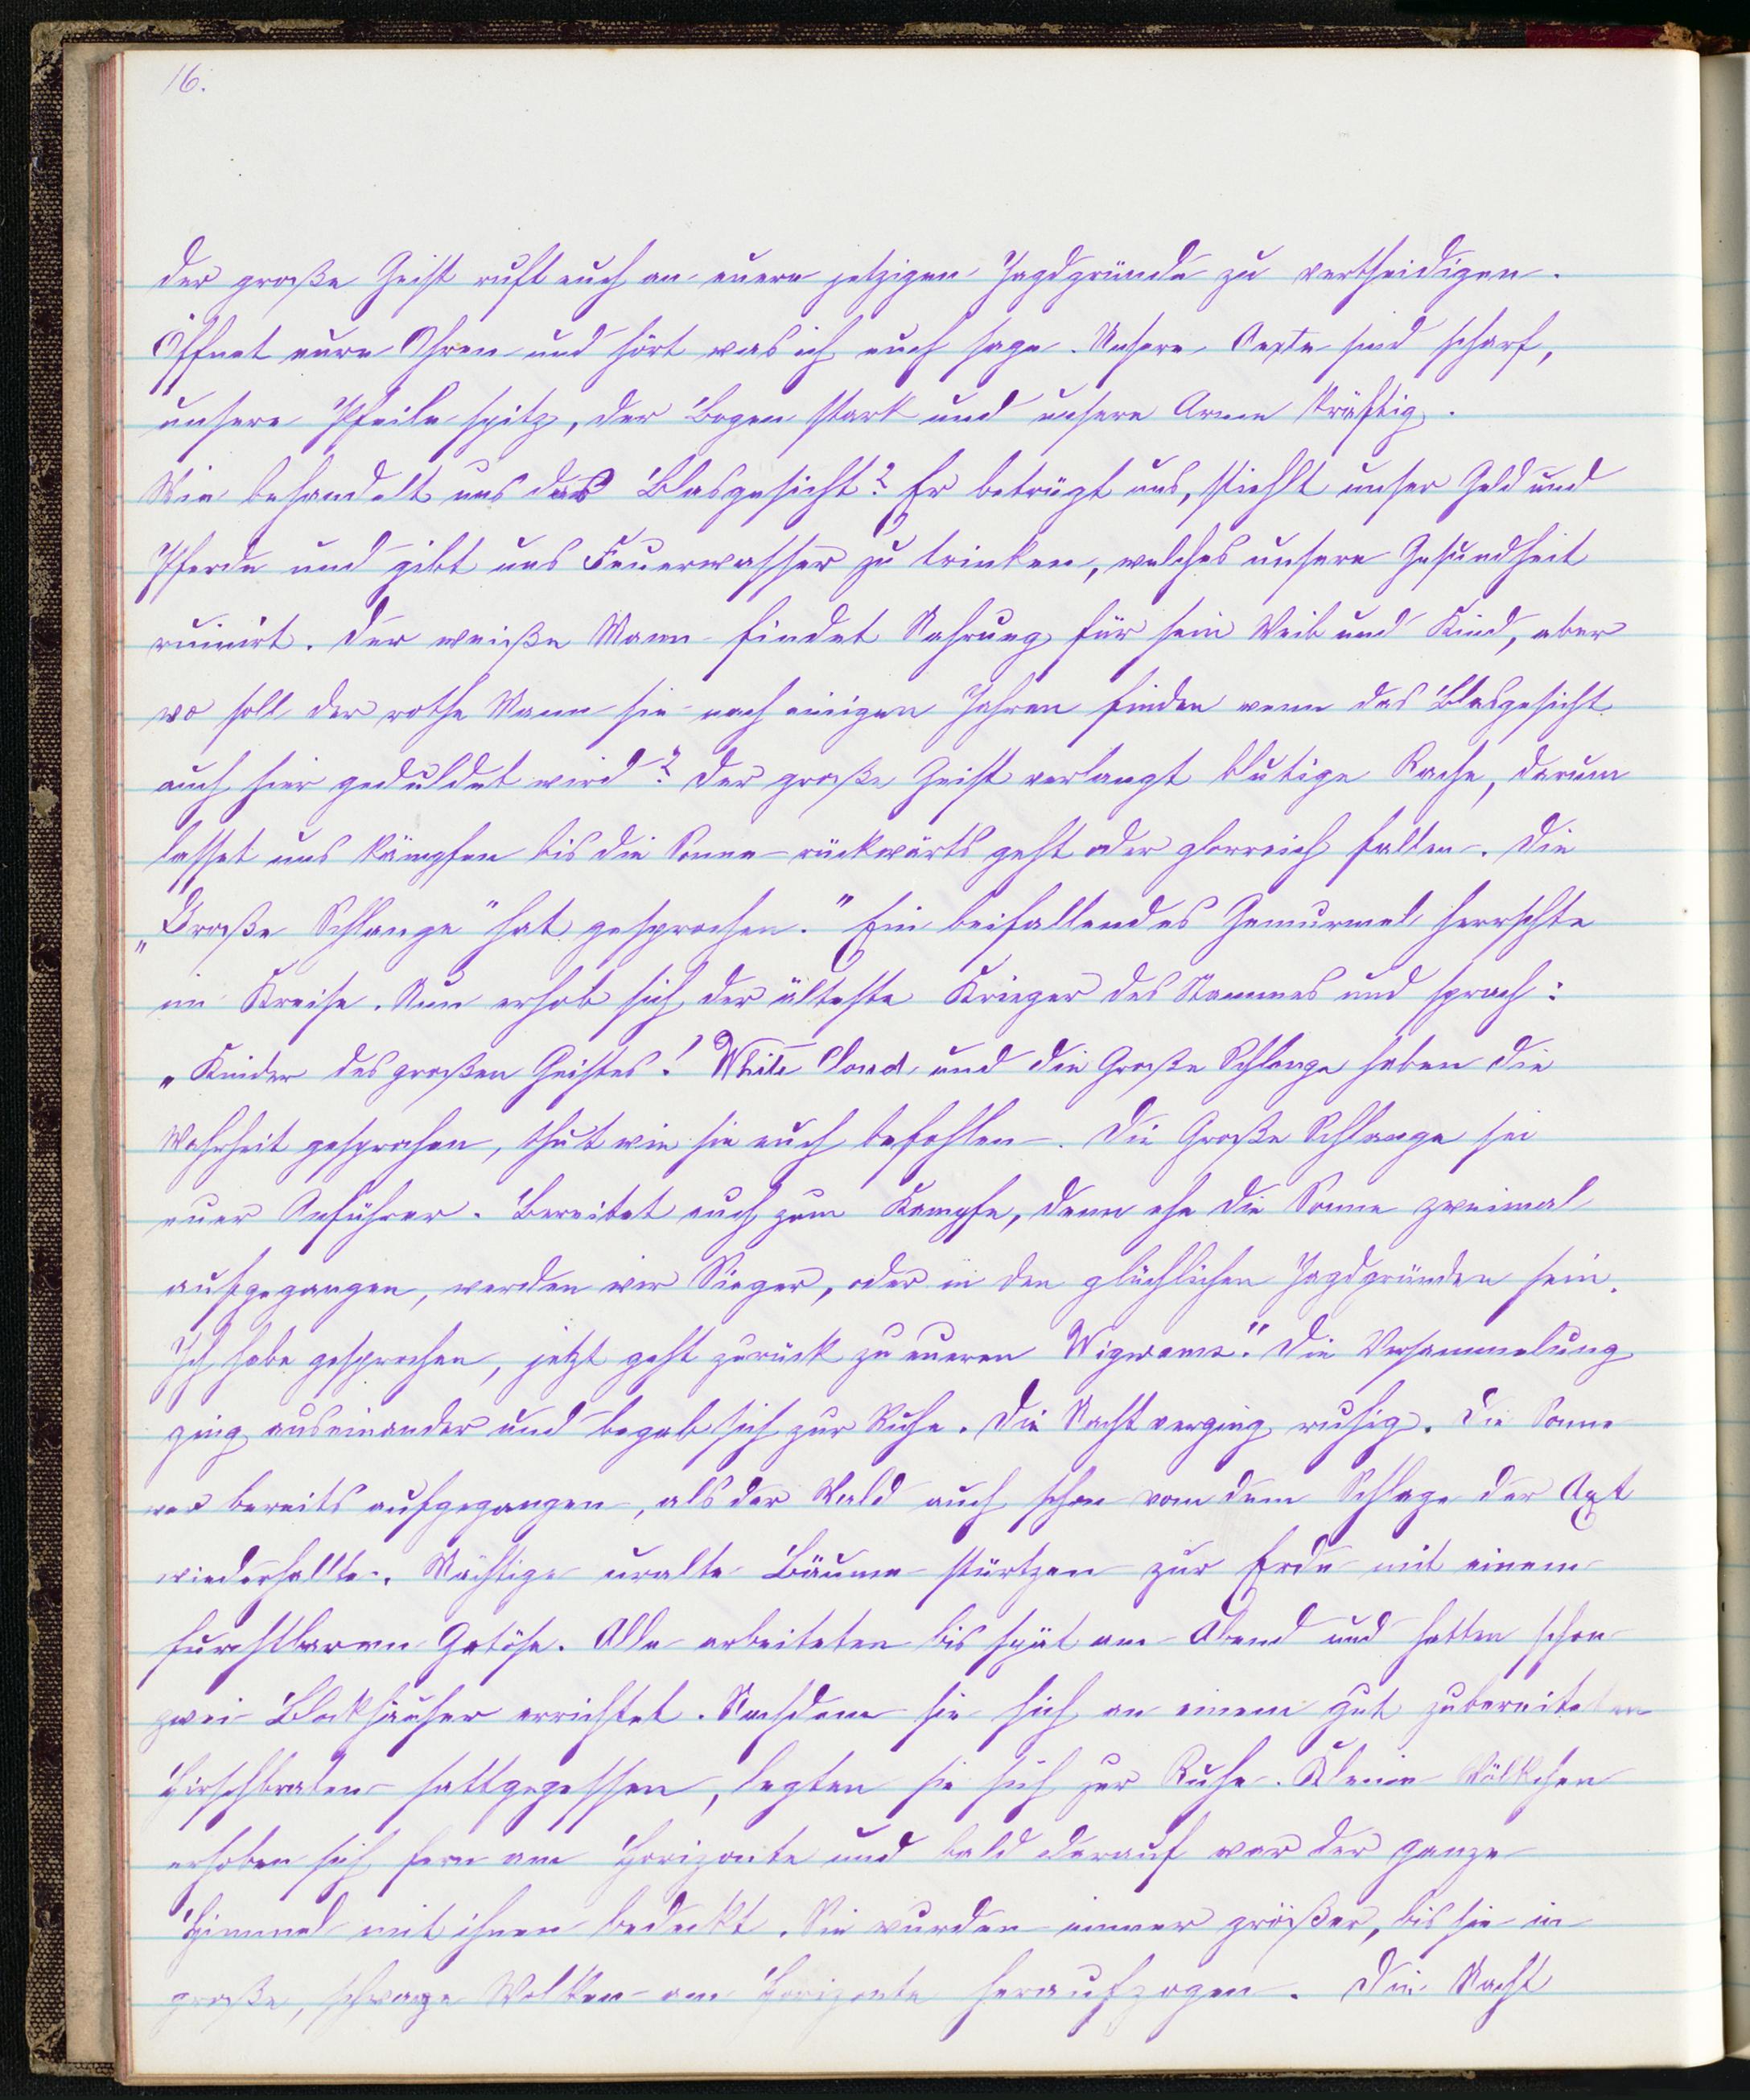 16.
der große Geist ruft euch an euere jetzigen Jagdgründe zu vertheidigen.
Öffnet eure Ohren und hört was ich euch sage. Unsere Aexte sind scharf,
unsere Pfeile spitz, der Bogen stark und unsere Arme kräftig.
Wie behandelt uns das Blasgesicht? Er betrügt uns, stiehlt unser Geld und
Pferde und gibt uns Feuerwasser zu trinken, welches unsere Gesundheit
ruinirt. Der weiße Mann findet Nahrung für sein Weib und Kind, aber
wo soll der rothe Mann sie nach einigen Jahren finden wenn das Blasgesicht
auch hier geduldet wird? Der große Geist verlangt blutige Rache, darum
lasset uns kämpfen bis die Sonne rückwärts geht oder glorreich fallen. Die
„Große Schlange" hat gesprochen." Ein beifallendes Gemurmel herrschte
im Kreise. Nun erhob sich der älteste Krieger des Stammes und sprach:
„Kinder des großen Geistes! White Cloud und die Große Schlange haben die
Wahrheit gesprochen, thut wie sie euch befohlen. Die Große Schlange sei
euer Anführer. Bereitet euch zum Kampfe, denn ehe die Sonne zweimal
aufgegangen, werden wir Sieger, oder in den glücklichen Jagdgründen sein.
Ich habe gesprochen, jetzt geht zurück zu eueren Wigwams." Die Versammelung
ging auseinander und begab sich zur Ruhe. Die Nacht verging ruhig. Die Sonne
war bereits aufgegangen, als der Wald auch schon von dem Schlage der Axt
wiederhallte. Mächtige uralte Bäume stürtzen zur Erde mit einem
furchtbaren Getöse. Alle arbeiteten bis spät am Abend und hatten schon
zwei Blockhäuser errichtet. Nachdem sie sich an einem gut zubereiteten
Hirschbraten sattgegessen, legten sie sich zur Ruhe. Kleine Wölkchen
erhoben sich fern am Horizonte und bald darauf war der ganze
Himmel mit ihnen bedeckt. Sie wurden immer größer, bis sie in
große, schwarze Wolken am Horizonte heraufzogen. Die Nacht